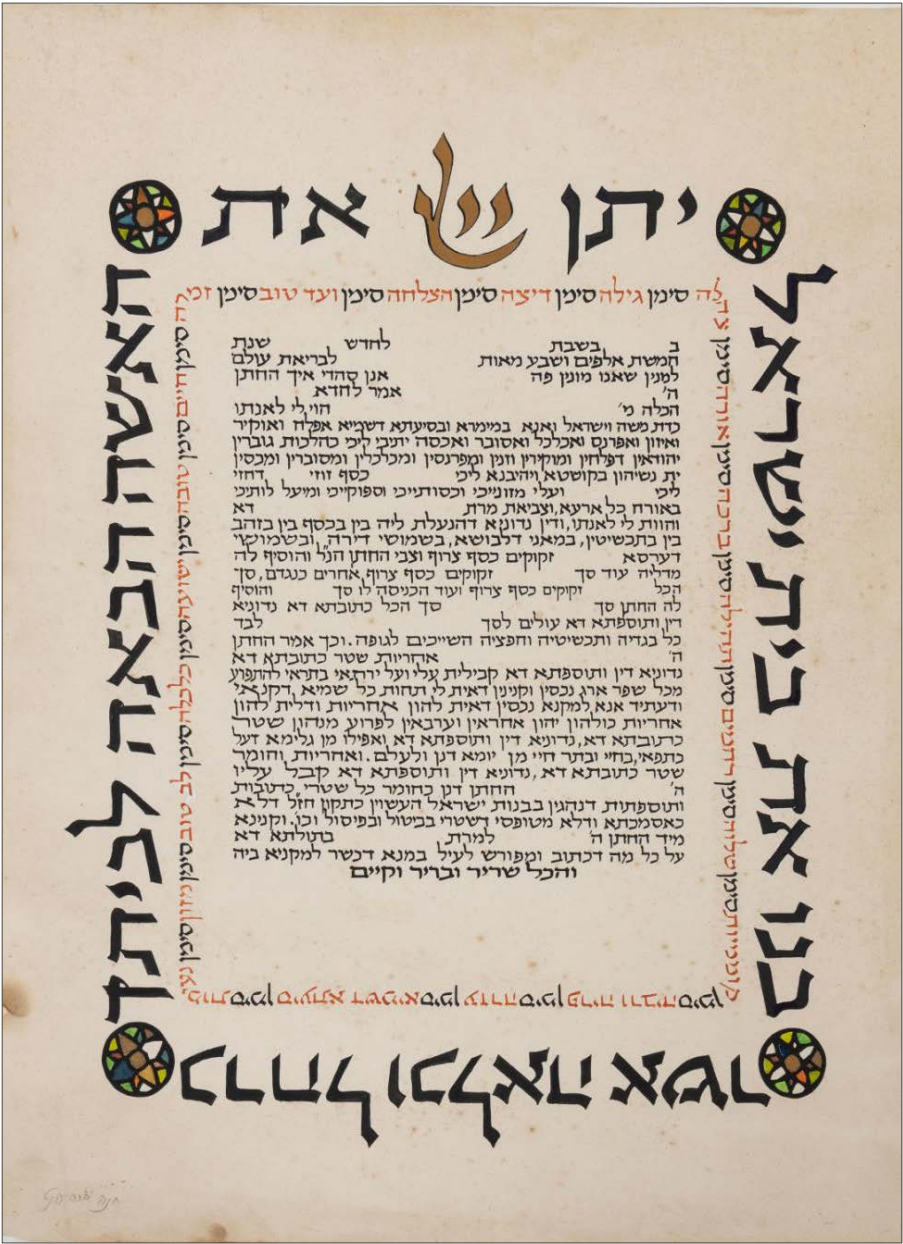 יתן יי את
האשה הבאה לביתך
כרחל וכלאה אשר
בנו את בית ישראל
לה סימן גילה סימן דיצה סימן הצלחה סימן ועד טוב סימן זמ
ב בשבת לחדש שנת
חמשת אלפים ושבע מאות לבריאת עולם
למנין שאנו מונין פה אנן סהדי איך החתן
ה׳ אמר להדא
הכלה מ׳ הוי לי לאנתו
כדת משה וישראל ואנא במימרא ובסיעתא דשמיא אפלח ואוקיר
ואיזון ואפרנס ואכלכל ואסובר ואכסה יתיכי ליכי כהלכות גוברין
יהודאין דפלחין ומוקירין וזנין ומפרנסין ומכלכלין ומסוברין ומכסין
ית נשיהון בקושטא ויהיבנא ליכי כסף זוזי דחזי
ליכי ועלי מזוניכי וכסותייכי וספוקייכי ומיעל לותיכי
באורח כל ארעא, וצביאת מרת דא
והוות לי לאנתו, ודין נדוניא דהנעלת ליה בין בכסף בין בזהב
בין בתכשיטין, במאני דלבושא, בשמושי דירה, ובשמושי
דערסא זקוקים כסף צרוף וצבי החתן הנ״ל והוסיף לה
מדליה עוד סך זקוקים כסף צרוף אחרים כנגדם, סך
הכל זקוקים כסף צרוף ועוד הכניסה לו סך והוסיף
לה החתן סך סך הכל כתובתא דא נדוניא
דין ותוספתא דא עולים לסך לבד
כל בגדיה ותכשיטיה וחפציה השייכים לגופה. וכך אמר החתן
ה׳ אחריות שטר כתובתא דא
נדוניא דין ותוספתא דא קבילית עלי ועל ירתאי בתראי להתפרע
מכל שפר ארג נכסין וקנינין דאית לי תחות כל שמיא דקנאי
ודעתיד אנא למקנא נכסין דאית להון אחריות ודלית להון
אחריות כולהון יהון אחראין וערבאין לפרוע מנהון שטר
כתובתא דא, נדוניא דין ותוספתא דא ואפילו מן גלימא דעל
כתפאי, בחיי ובתר חיי מן יומא דנן ולעלם. ואחריות וחומר
שטר כתובתא דא, נדוניא דין ותוספתא דא קבל עליו
ה׳ החתן דנן כחומר כל שטרי כתובות
ותוספתות דנהגין בבנות ישראל העשוין כתקון חז״ל דלא
כאסמכתא ודלא כטופסי דשטרי בביטול ובפיסול וכו׳. וקנינא
מיד החתן ה׳ למרת בתולתא דא
על כל מה דכתוב ומפורש לעיל במנא דכשר למקניא ביה
והכל שריר ובריר וקיים
רה סימן חיים סימן טובה סימן ישועה סימן כלכלה סימן לב טוב סימן מזון סימן נצ
יבות סימן סיעתא דשמיא סימן עזרה סימן פריה ורביה סימן
צהלה סימן אורה סימן ברכה סימן תהילה סימן רחמים סימן שלוה סימן קוממיות